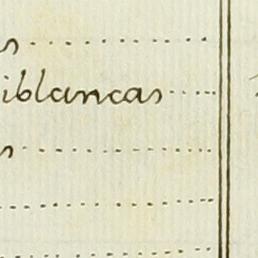 s
iblancas
s